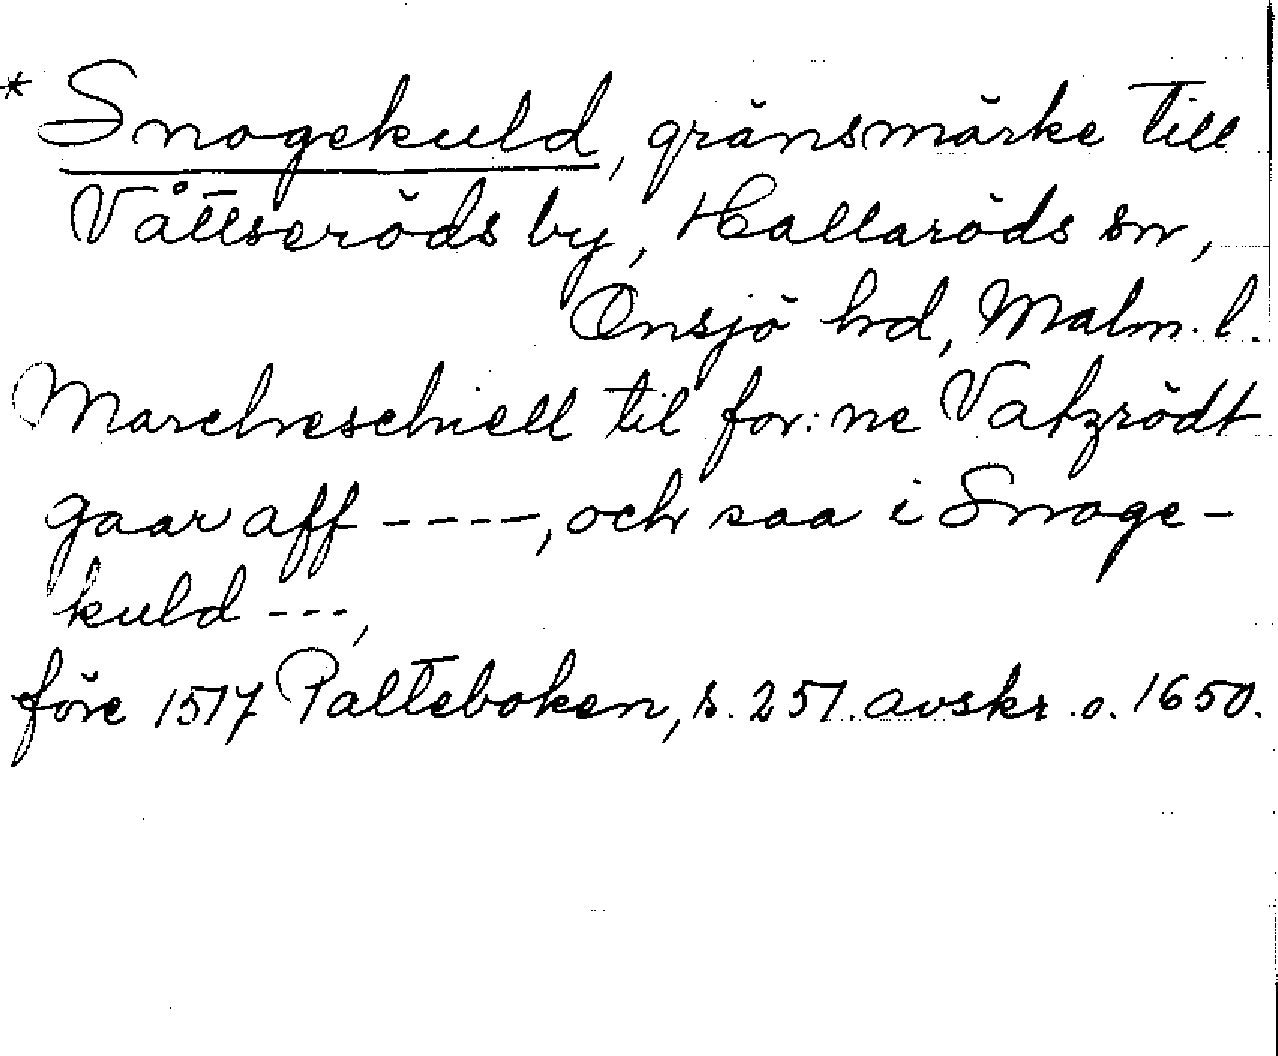 * Snogekuld, gränsmärke till
Våttseröds by, Hallaröds sn,
Onsjö hd, Malm. l.
Marcheschiell til for: ne Vatzrödt
gaar aff ----, och saa i Snoge-
kuld ---,
före 1517 Palteboken, s. 251. avskr. o. 1650.